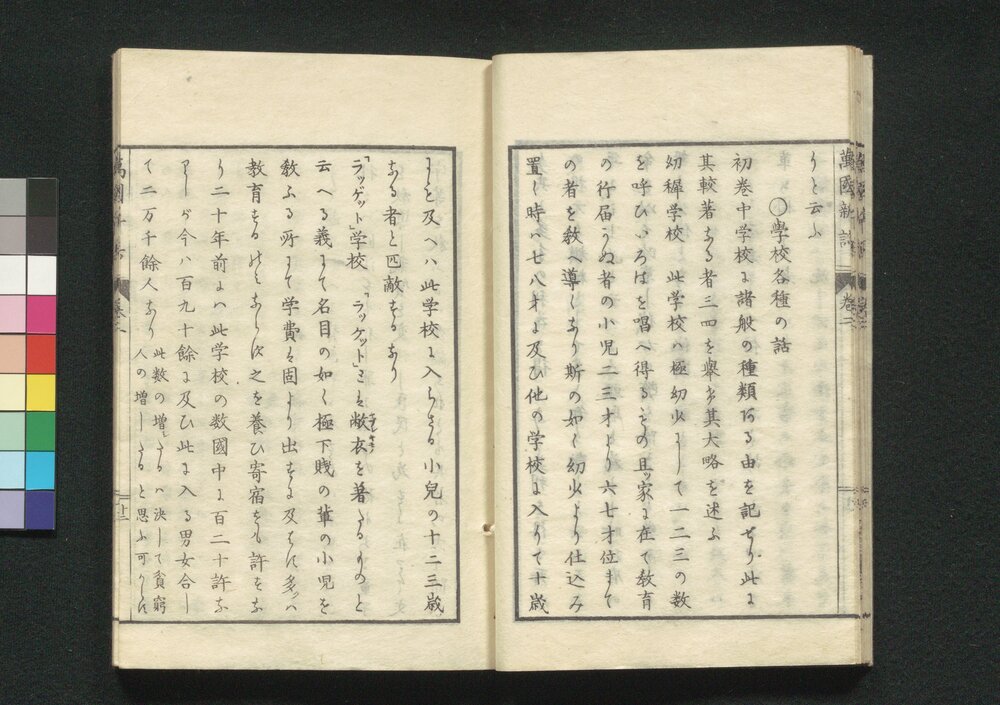 りと云ふ
○学校各種の話
初巻中学校に諸般の種類ある由を記せり此に
其較著なる者三四を挙け其大略を述ふ
幼穉学校 此学校ハ極幼少にして一二三の数
を呼ひいろはを唱へ得るもの且ッ家に在て教育
の行届かぬ者の小児二三才より六七才位まて
の者を教へ導くなり斯の如く幼少より仕込み
置く時ハ七八才に及ひ他の学校に入りて十歳
にも及へハ此学校に入らさる小児の十二三歳
なる者と匹敵するなり
「ラッゲット」学校 「ラッケット」とハ敝衣を著たるものと
云へる義にて名目の如く極下賤の輩の小児を
教ふる所にて学費ハ固より出すに及はす多くハ
教育するのみならす之を養ひ寄宿をも許すな
り二十年前にハ此学校の数國中に百二十許な
りしか今ハ百九十餘に及ひ此に入る男女合し
て二万千餘人なり
此数の増たるハ決して貧窮
人の増したると思ふ可からす
萬國新話
巻三